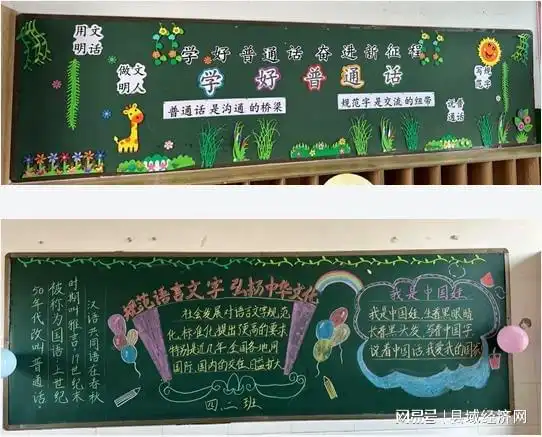 学好普通话奋进新征程
用文
明话
做文
明人
学好普通话
普通话是沟通的桥梁
规范字是交流的纽带
说普
通话
规范语言文字 弘扬中华文化
汉语共同语在春秋
时期叫雅言,19世纪末
被称为国语,上世纪
50年代改叫普通话。
社会发展对语言文字规范
化、标准化提出 的要求
特别是近几年全国各地间
国际、国内的交往日益扩大
四.二班
我是中国娃
我是中国娃,生着黑眼睛
长着黑头发,写着中国字
说着中国话,我爱我的国家
搜狐号@县域经济网